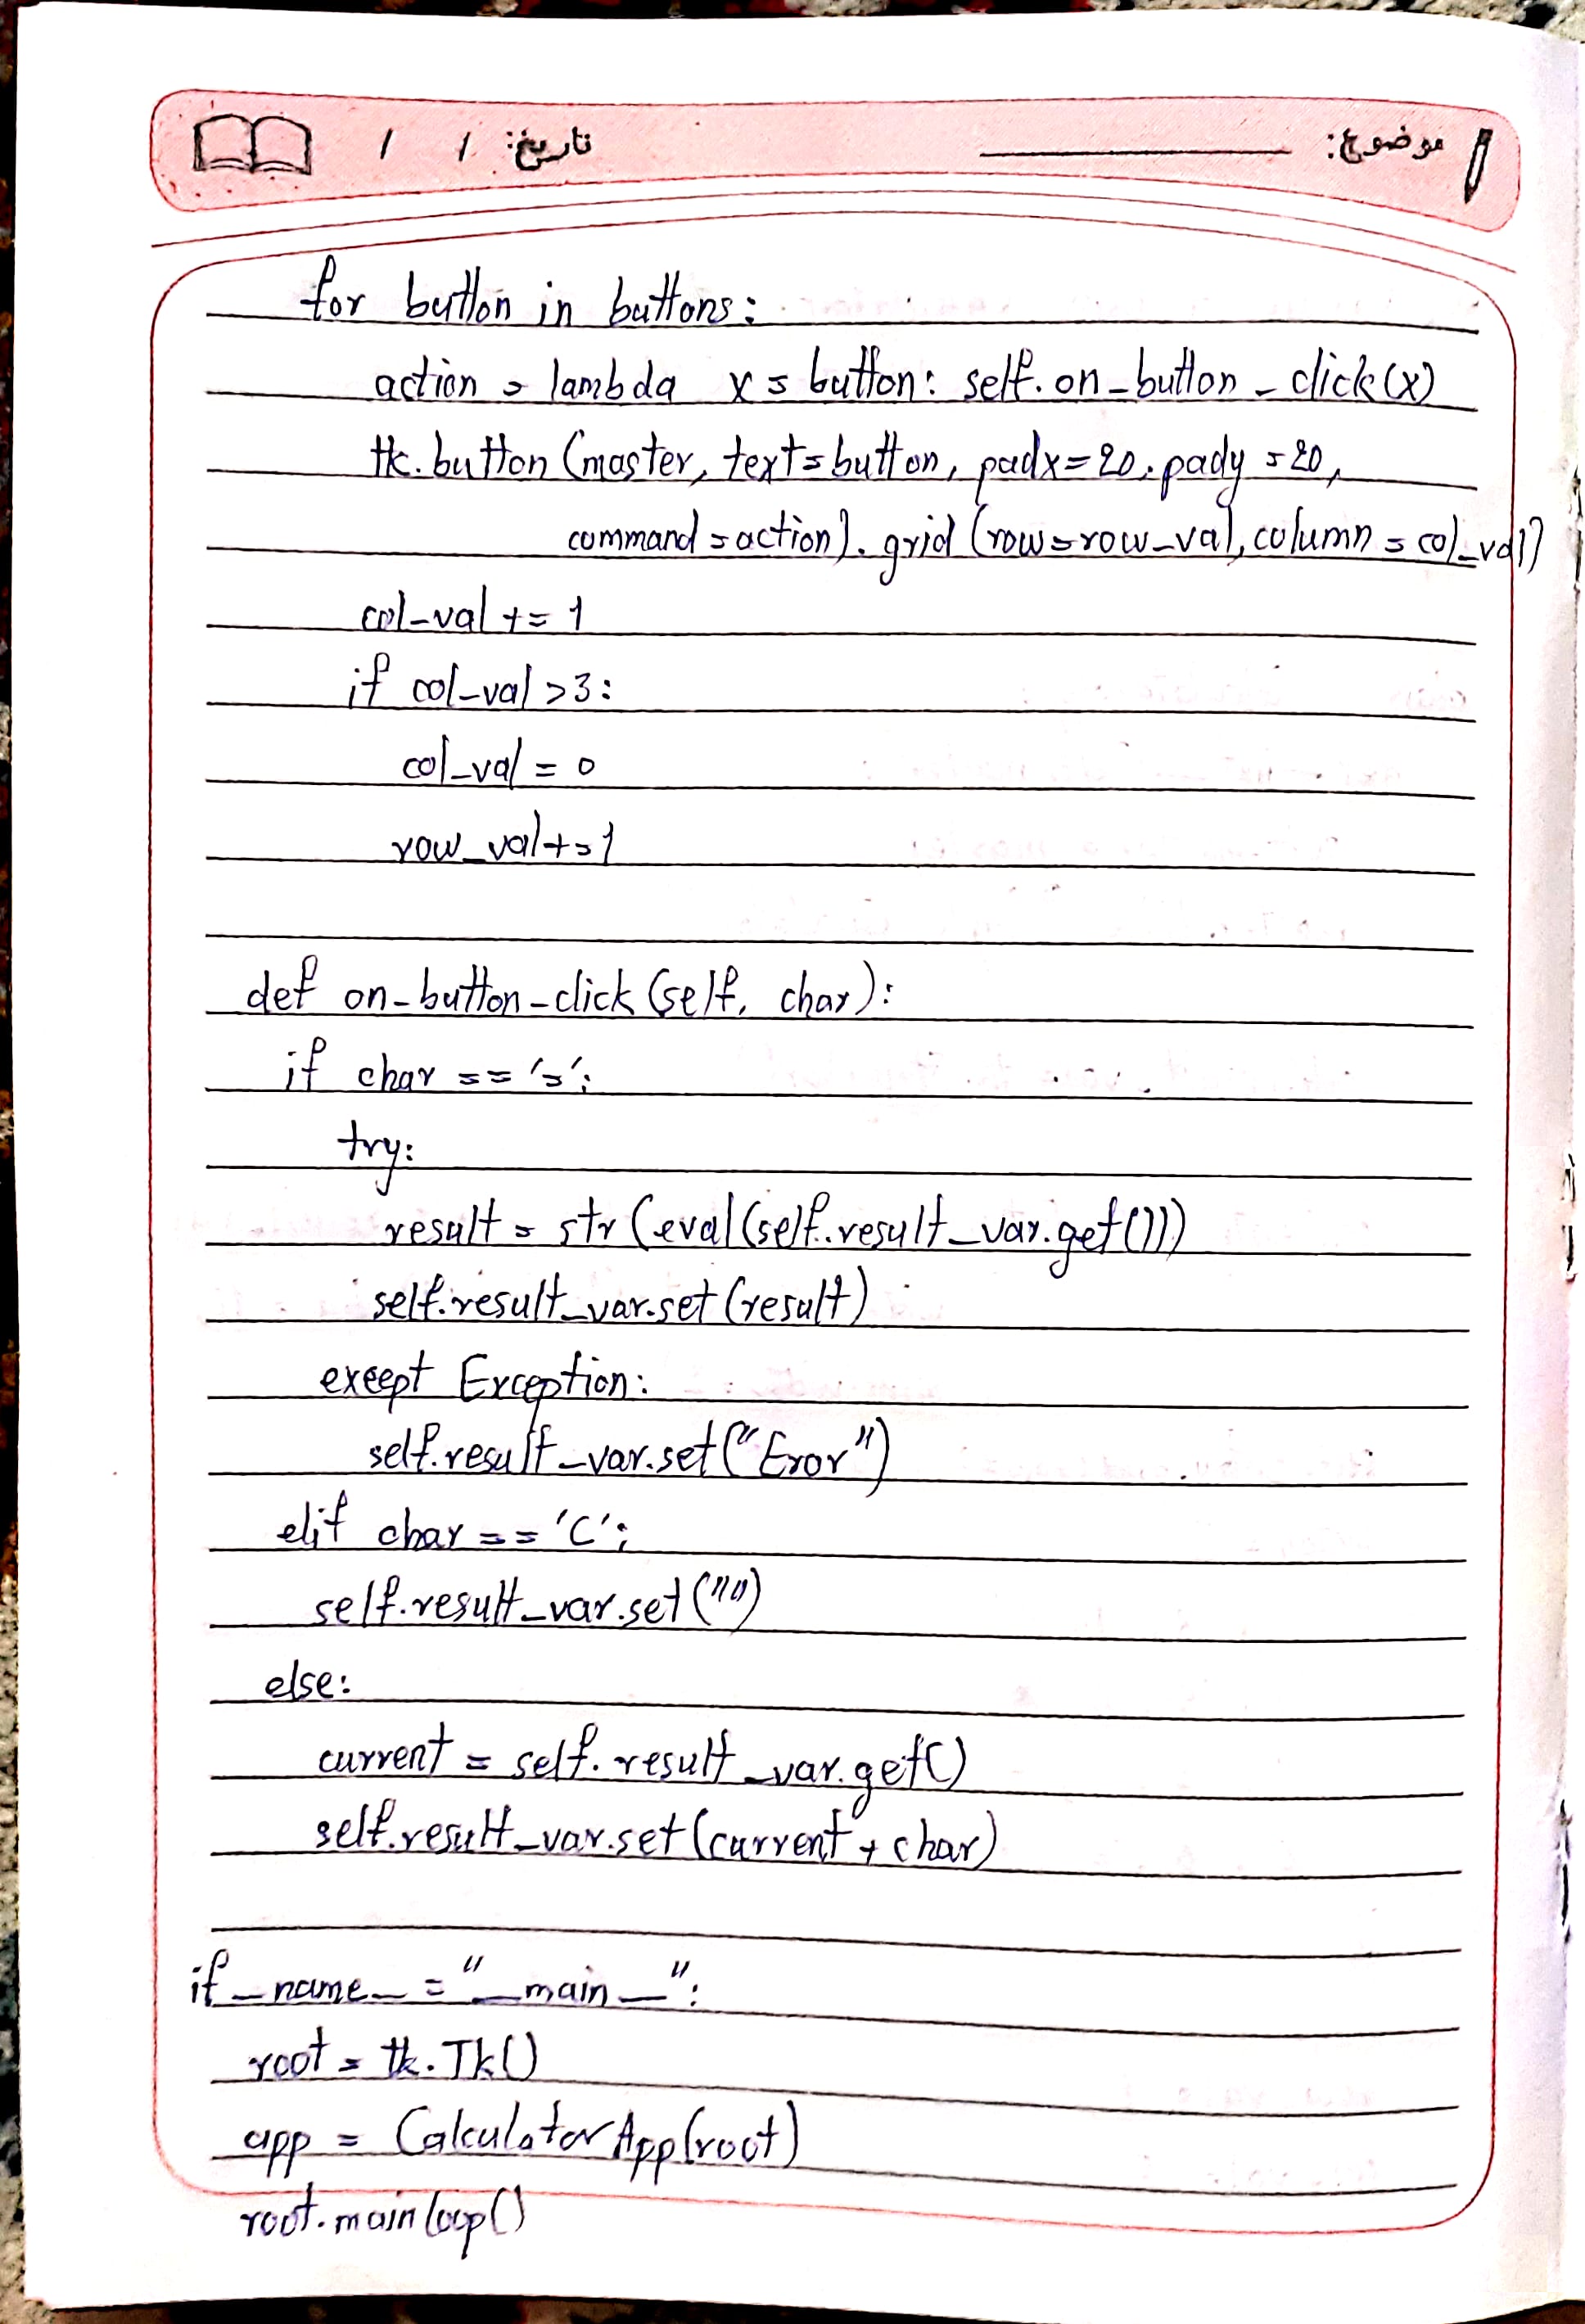 موضوع: تاریخ: / /
for button in buttons:
action = lambda x = button: self.on_button_click(x)
tk.button (master, text=button, padx=20, pady=20,
command=action).grid (row=row_val, column=col_val)
col_val += 1
if col_val >3:
col_val = 0
row_val+=1
def on_button_click (self, char):
if char == '=':
try:
result = str (eval (self.result_var.get()))
self.result_var.set (result)
except Exception:
self.result_var.set ("Eror")
elif char == 'C':
self.result_var.set ("")
else:
current = self.result_var.get()
self.result_var.set (current + char)
if _name_ = "_main_":
root = tk.Tk()
app = CalculatorApp(root)
root.mainloop()